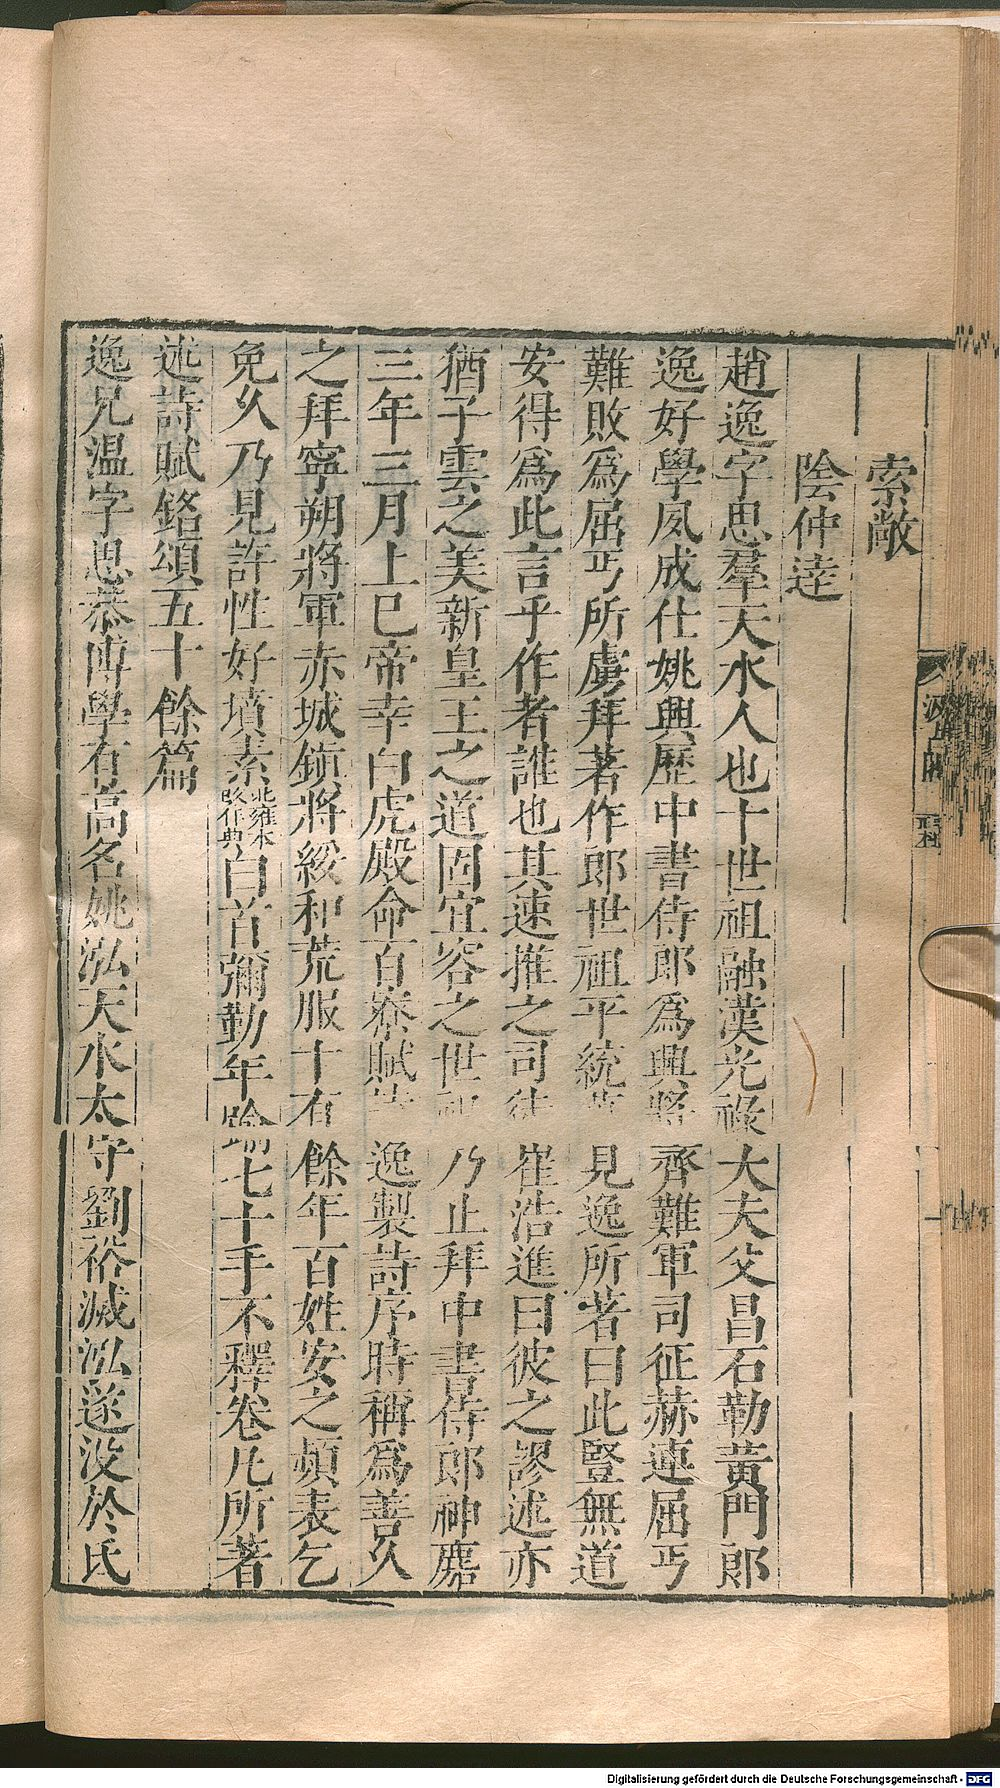 索敞
陰仲逹
趙逸字思羣天水人也十世祖融漢光祿大夫父昌石勒黃門郎
逸好學夙成仕姚興歷中書侍郎爲興將齊難軍司征赫連屈丐
難敗爲屈丐所虜拜著作郎世祖平統萬見逸所著曰此豎無道
安得爲此言乎作者誰也其速推之司徒崔浩進曰彼之謬述亦
猶子雲之美新皇王之道固宜容之世祖乃止拜中書侍郎神䴥
三年三月上巳帝幸白虎殿命百寮賦詩逸製詩序時稱爲善久
之拜寧朔將軍赤城鎮將綏和荒服十有餘年百姓安之頻表乞
免久乃見許性好墳素北雍本作典白首彌勤年踰七十手不釋卷凡所著
述詩賦銘頌五十餘篇
逸兄温字思恭博學有高名姚泓天水太守劉裕滅泓遂没於氐
Digitalisierung gefördert durch die Deutsche Forschungsgemeinschaft - DFG